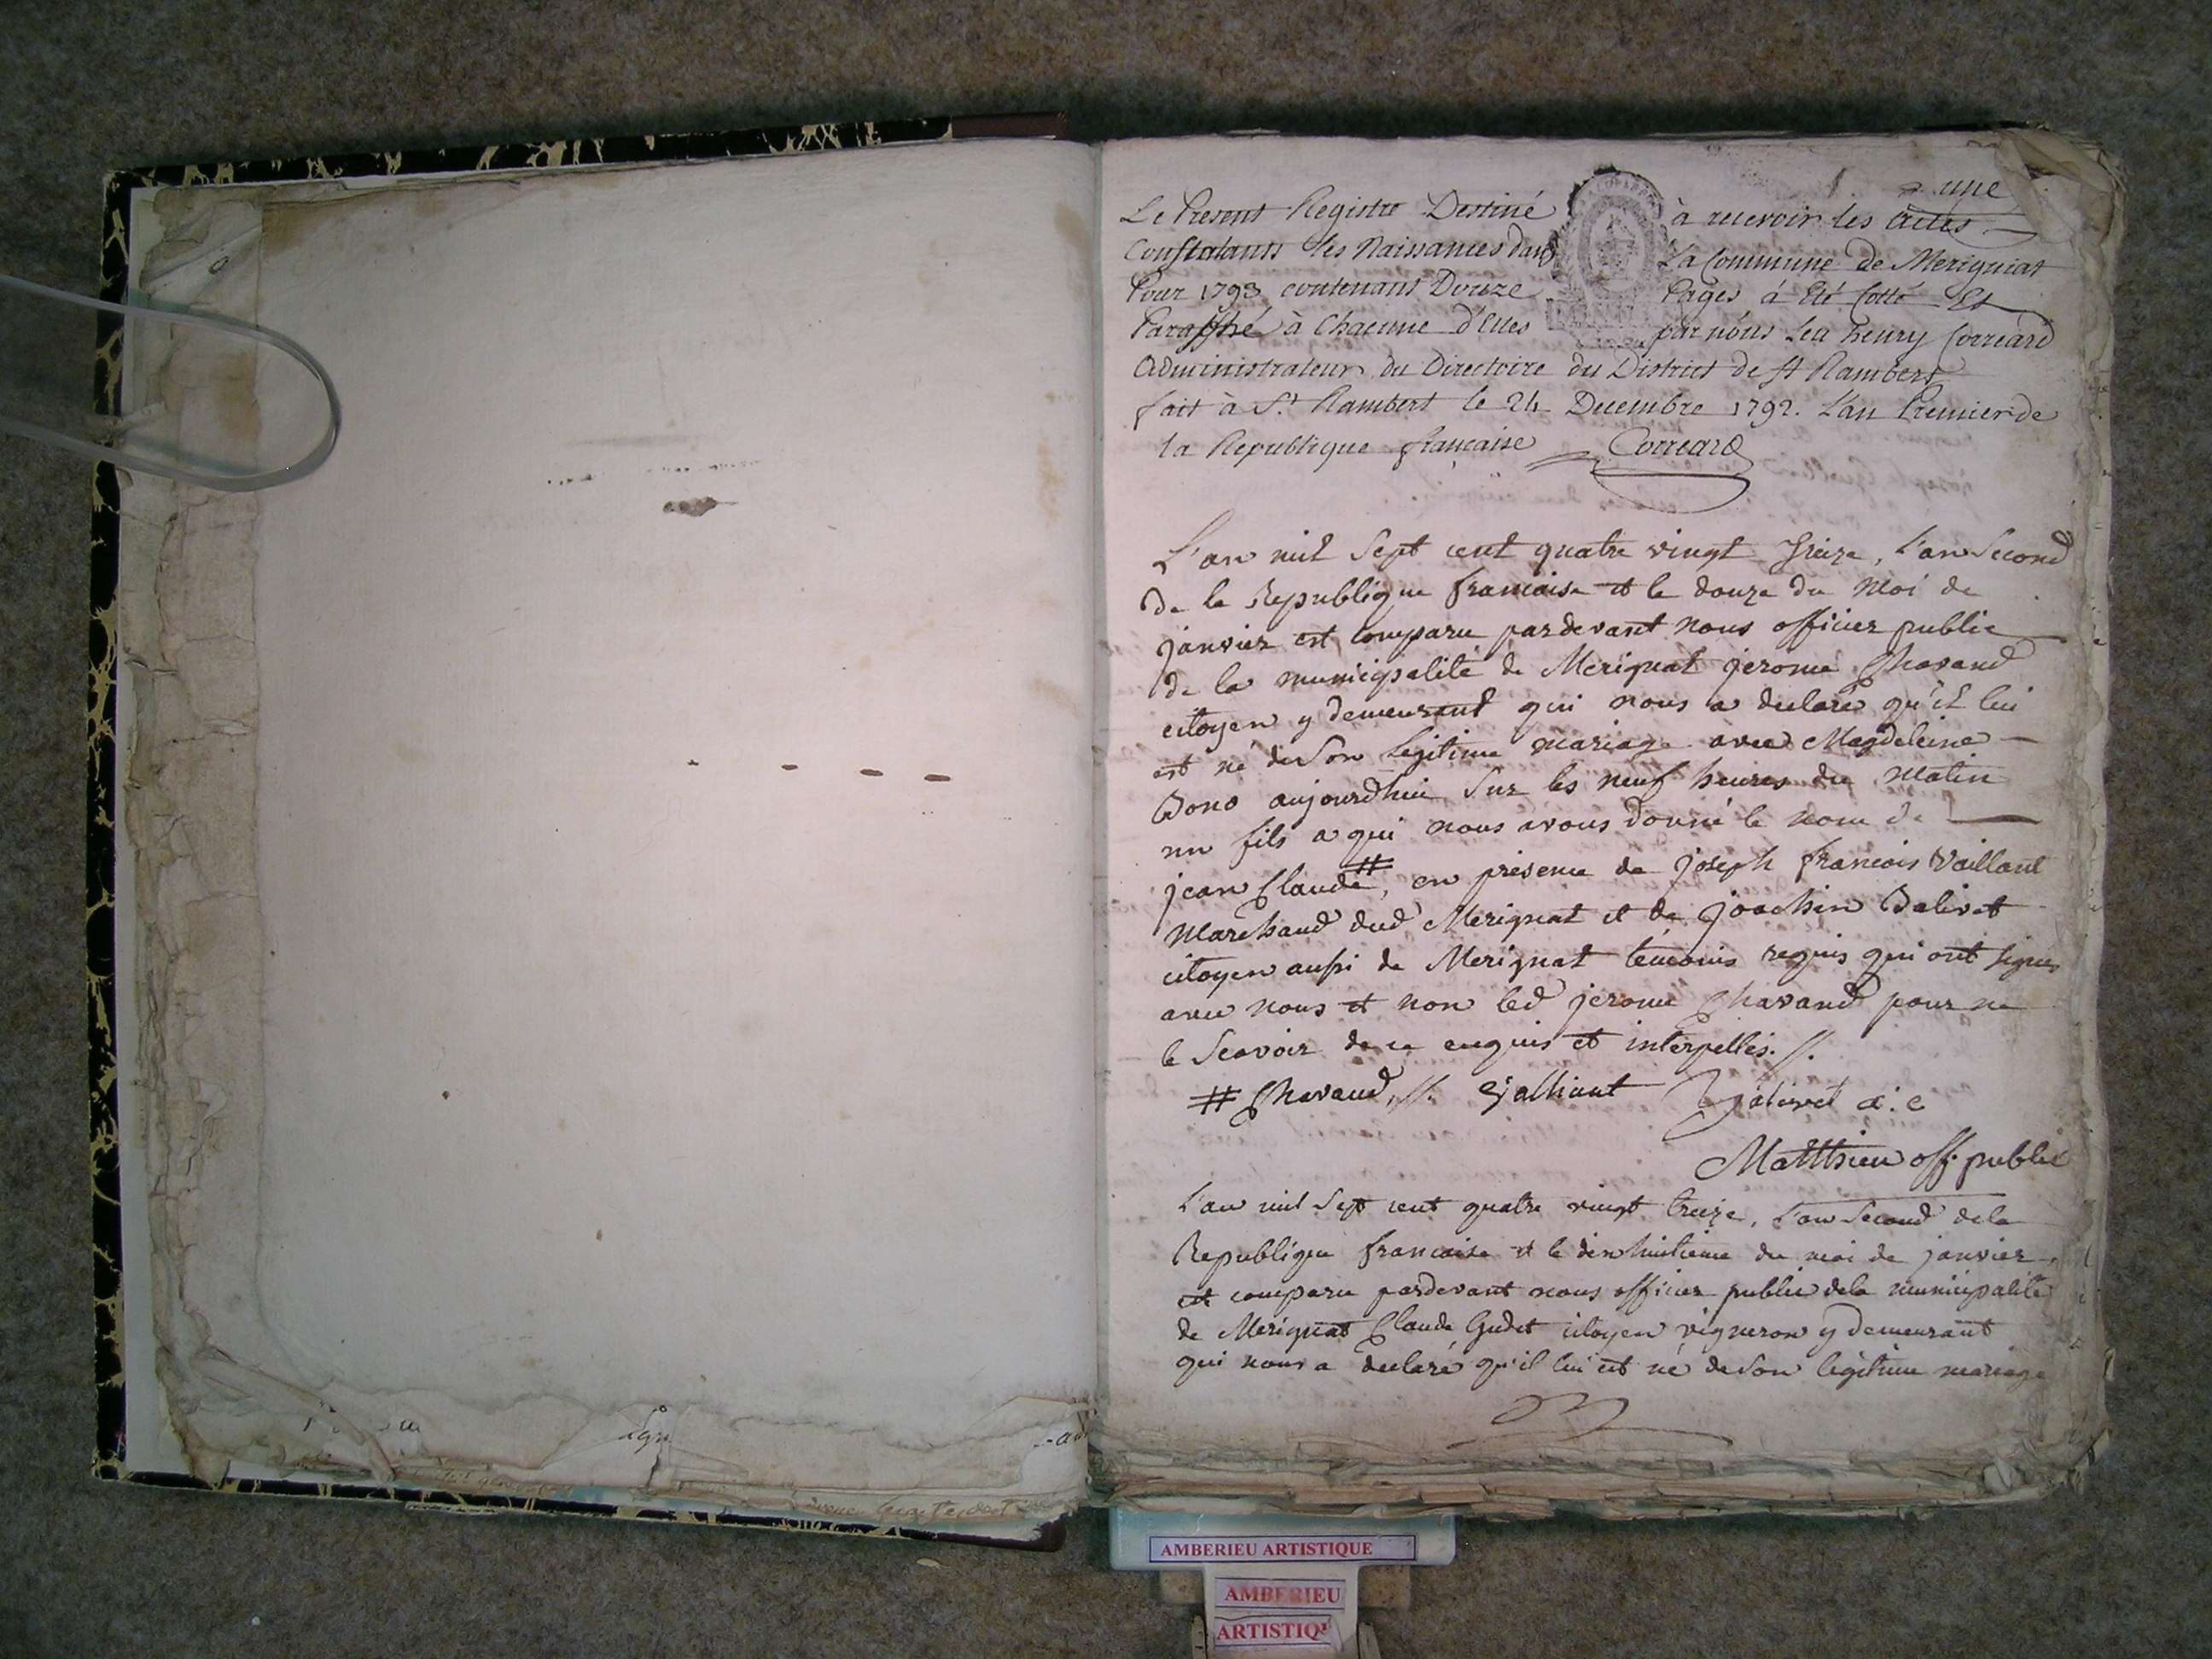 une
Le Present Registre Destiné à recevoir les actes
Constatants les Naissances dans La Commune de Merigniat
Pour 1793 contenant Douze Pages à Eté Cotté Et
Paraffré à Chacune d'Elles par nous Lea henry Correard
Administrateur du Directoire du District de St Rambert
fait à St Rambert le 24 Decembre 1792. L'an Premier de
la Republique française Correard
L'an mil Sept cent quatre vingt Treize, l'an Second
De la Republique francoise et le douze du Moi de
janvier est comparu pardevant nous officier public
de la municipalité de Merignat jerome Chavand
citoyen y demeurant qui nous a declaré qu'il lui
est né de Son legitime mariage avec Magdeleine
Bono aujourdhui Sur les neuf heures du matin
un fils a qui nous avons donné le nom de
jean Claude #, en presence de joseph francois Vaillant
Marchand dud Merignat et de joachin Balivet
citoyen aussi de Merignat temoins requis qui ont signes
avec nous et non led jerome Chavand pour ne
le Scavoir de ce enquis et interpellés. //.
# Chavand, //. Valliant Balivet
Matthieu off. public
L'an mil Sept cent quatre vingt treize, l'an Second de la
Republique francoise et le dix huitieme du moi de janvier
est comparu pardevant nous officier public de la municipalité
de Merignat Claude Gudet citoyen vigneron y demeurant
qui nous a declaré qu'il lui est né de Son legitime mariage
AMBERIEU ARTISTIQUE
AMBERIEU
ARTISTIQU